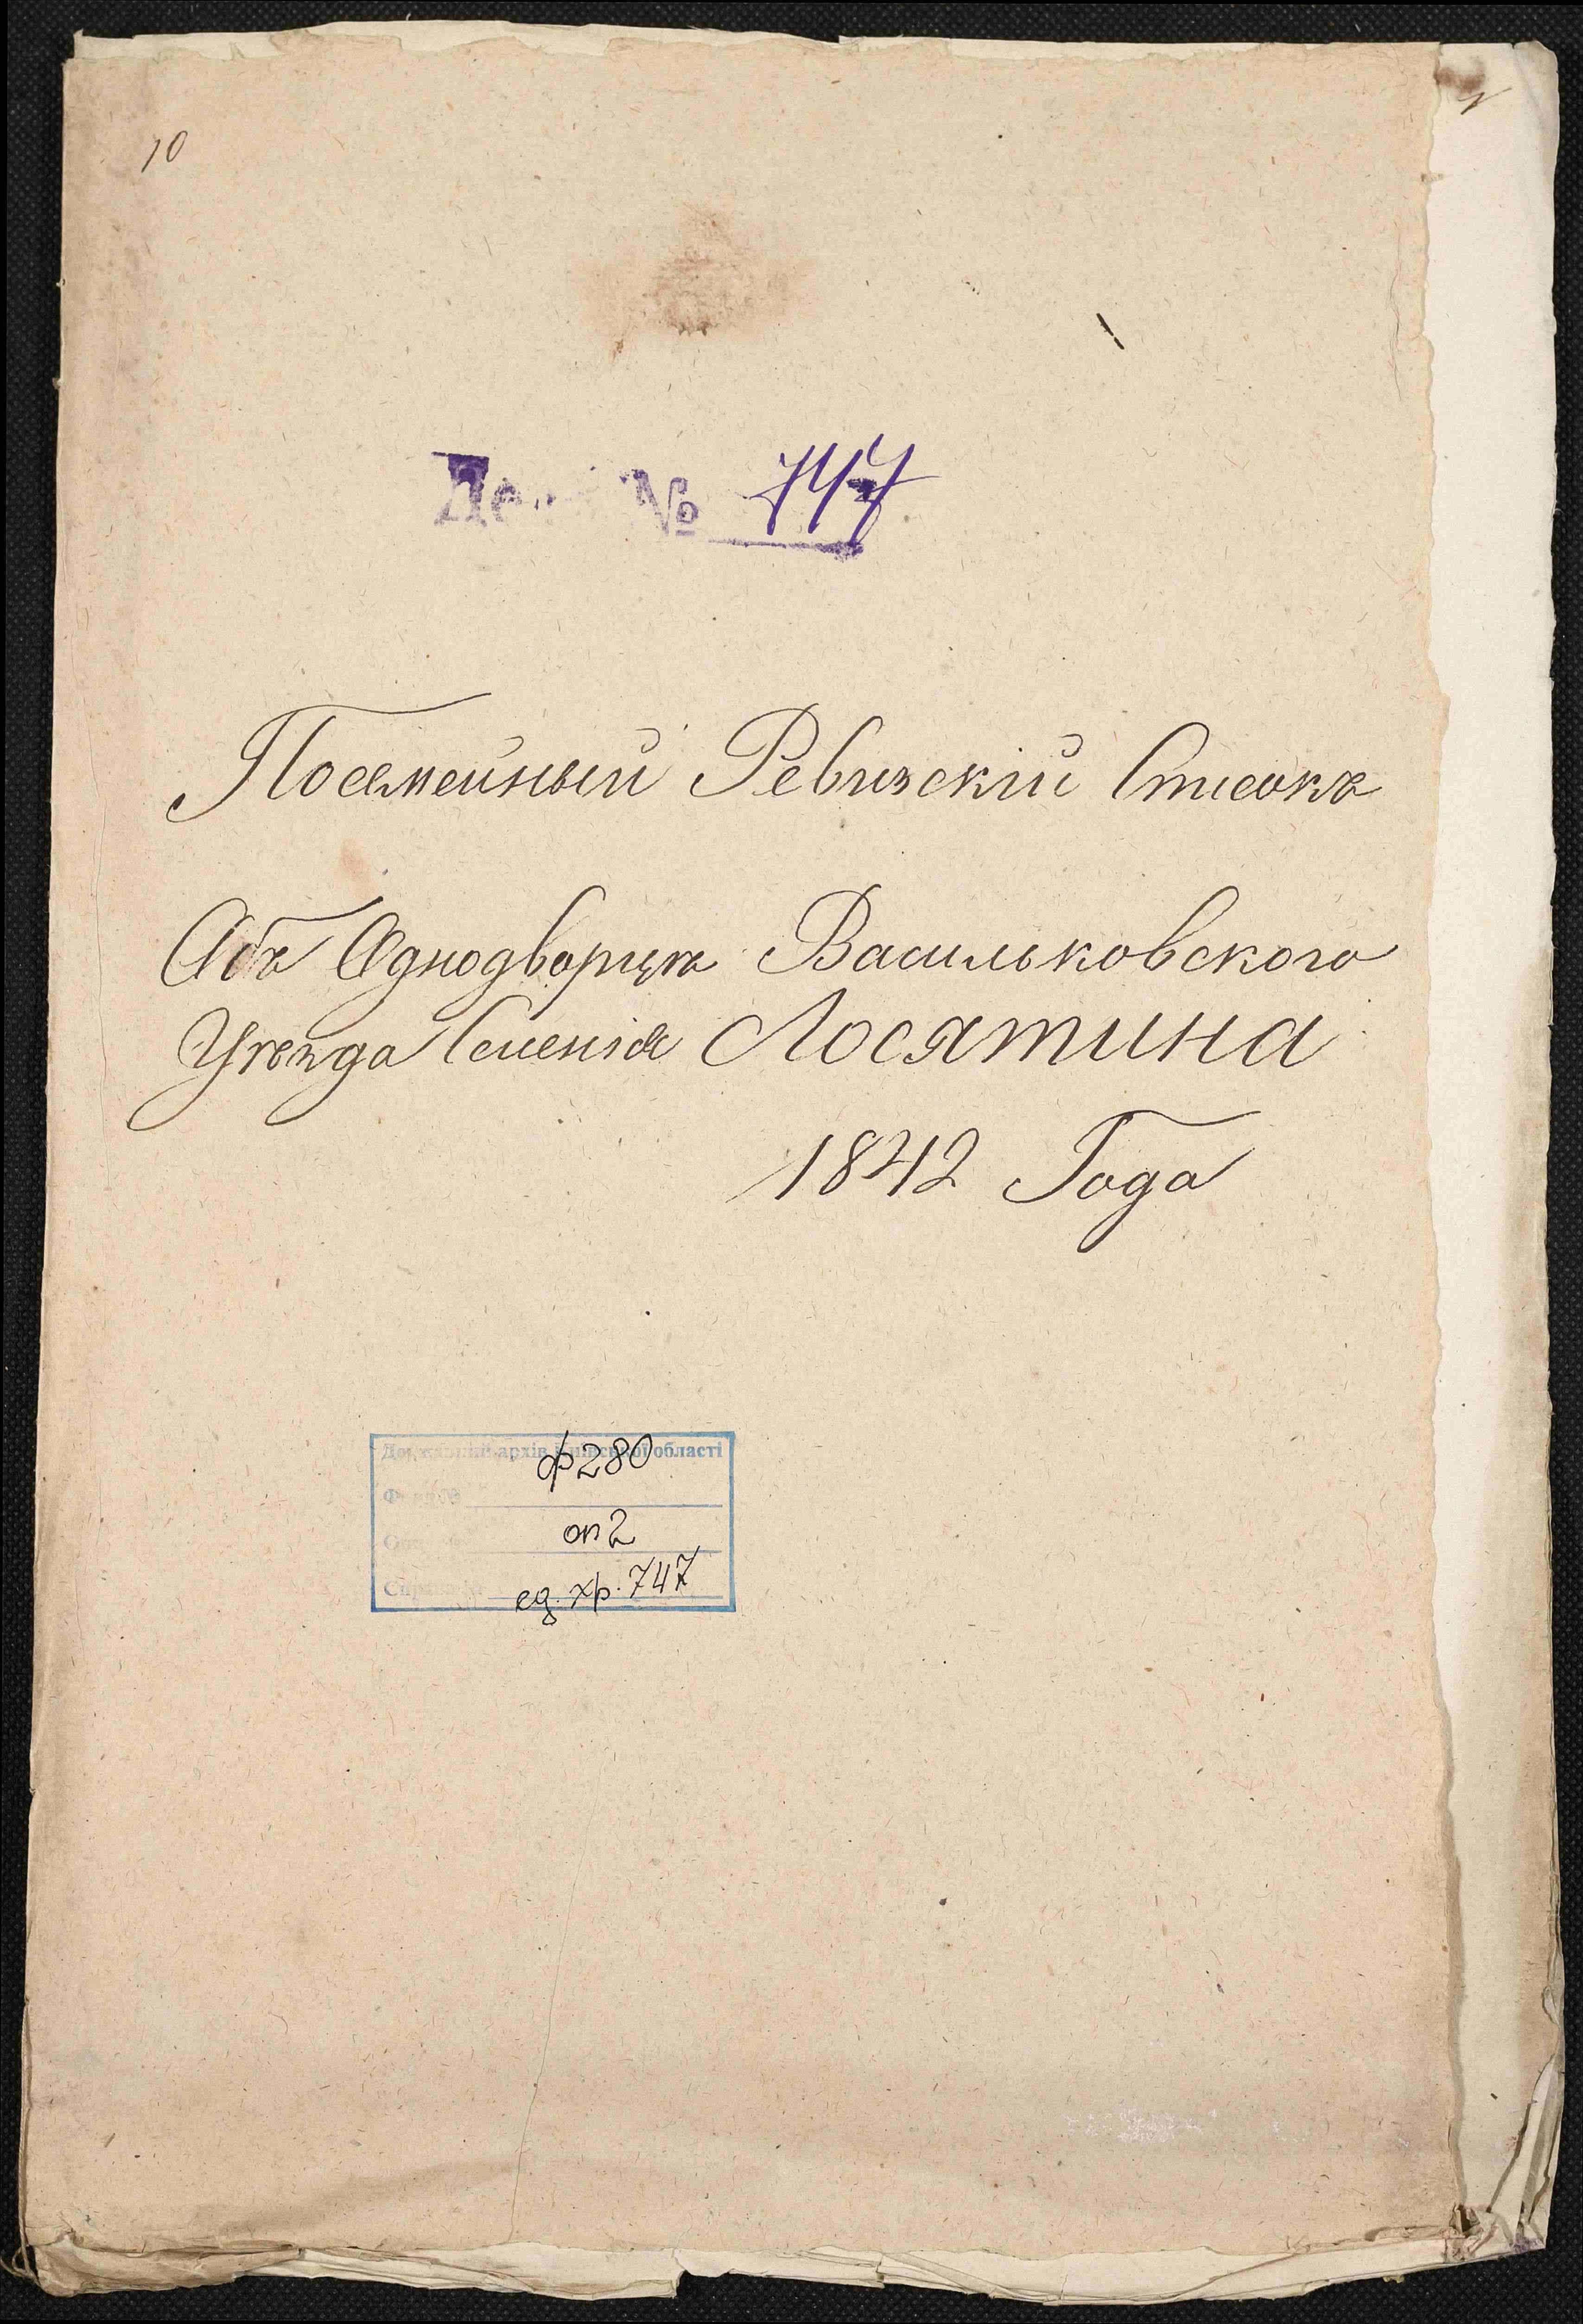 10
Дело № 747
Посемейный Ревизскій Списокъ
Объ Однодворцѣ Васильковского
Уѣзда Селенія Лосятина
1842 Года
Державний архів Київської області
ф 280
оп 2
ед. хр. 747